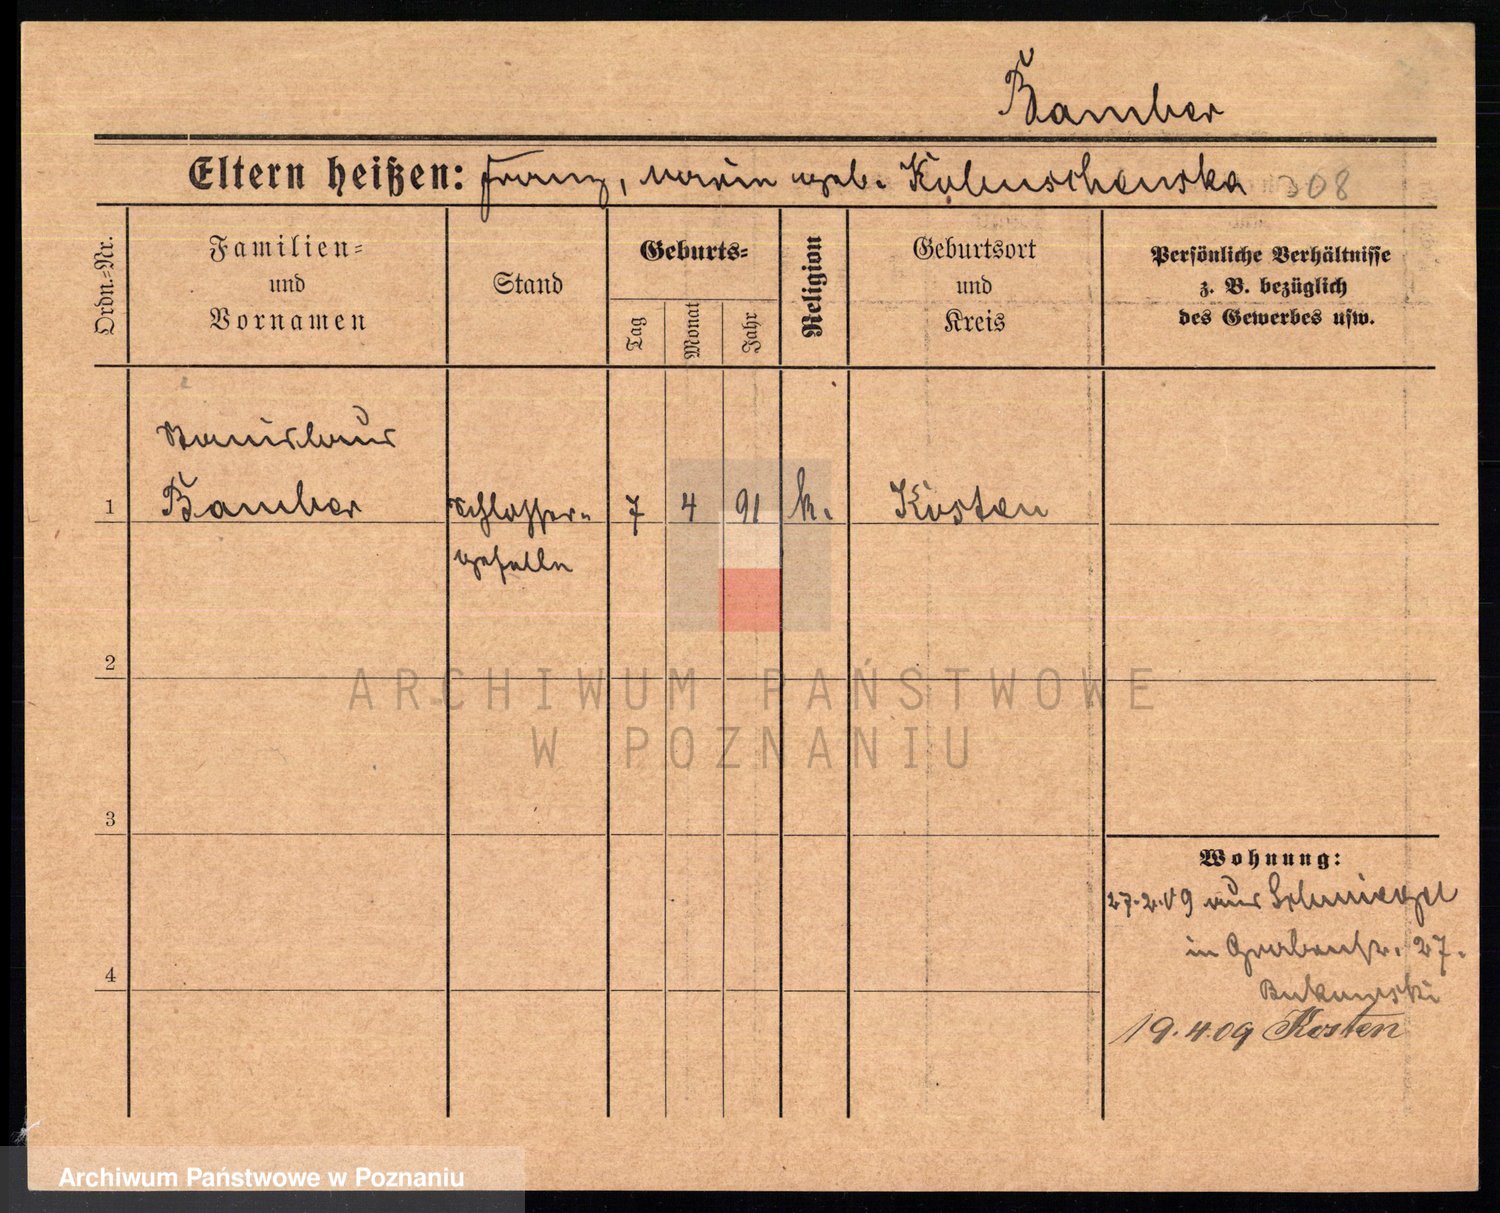 Bamber
Eltern heißen: Franz, Marie geb. 308
Ordn.-Nr.
Familien-
und
Vornamen
Stand
Geburts-
Tag
Monat
Jahr
Religion
Geburtsort
und
Kreis
Persönliche Verhältnisse
z. B. bezüglich
des Gewerbes usw.
Stanislaus
1 Bamber Schlosser- 7 4 91 k. Kosten
geselle
2
ARCHIWUM PAŃSTWOWE
W POZNANIU
3
Wohnung:
27.2.09 aus Schmiegel
in Grabenstr. 27.
4
Bukowski
19.4.09 Kosten
Archiwum Państwowe w Poznaniu